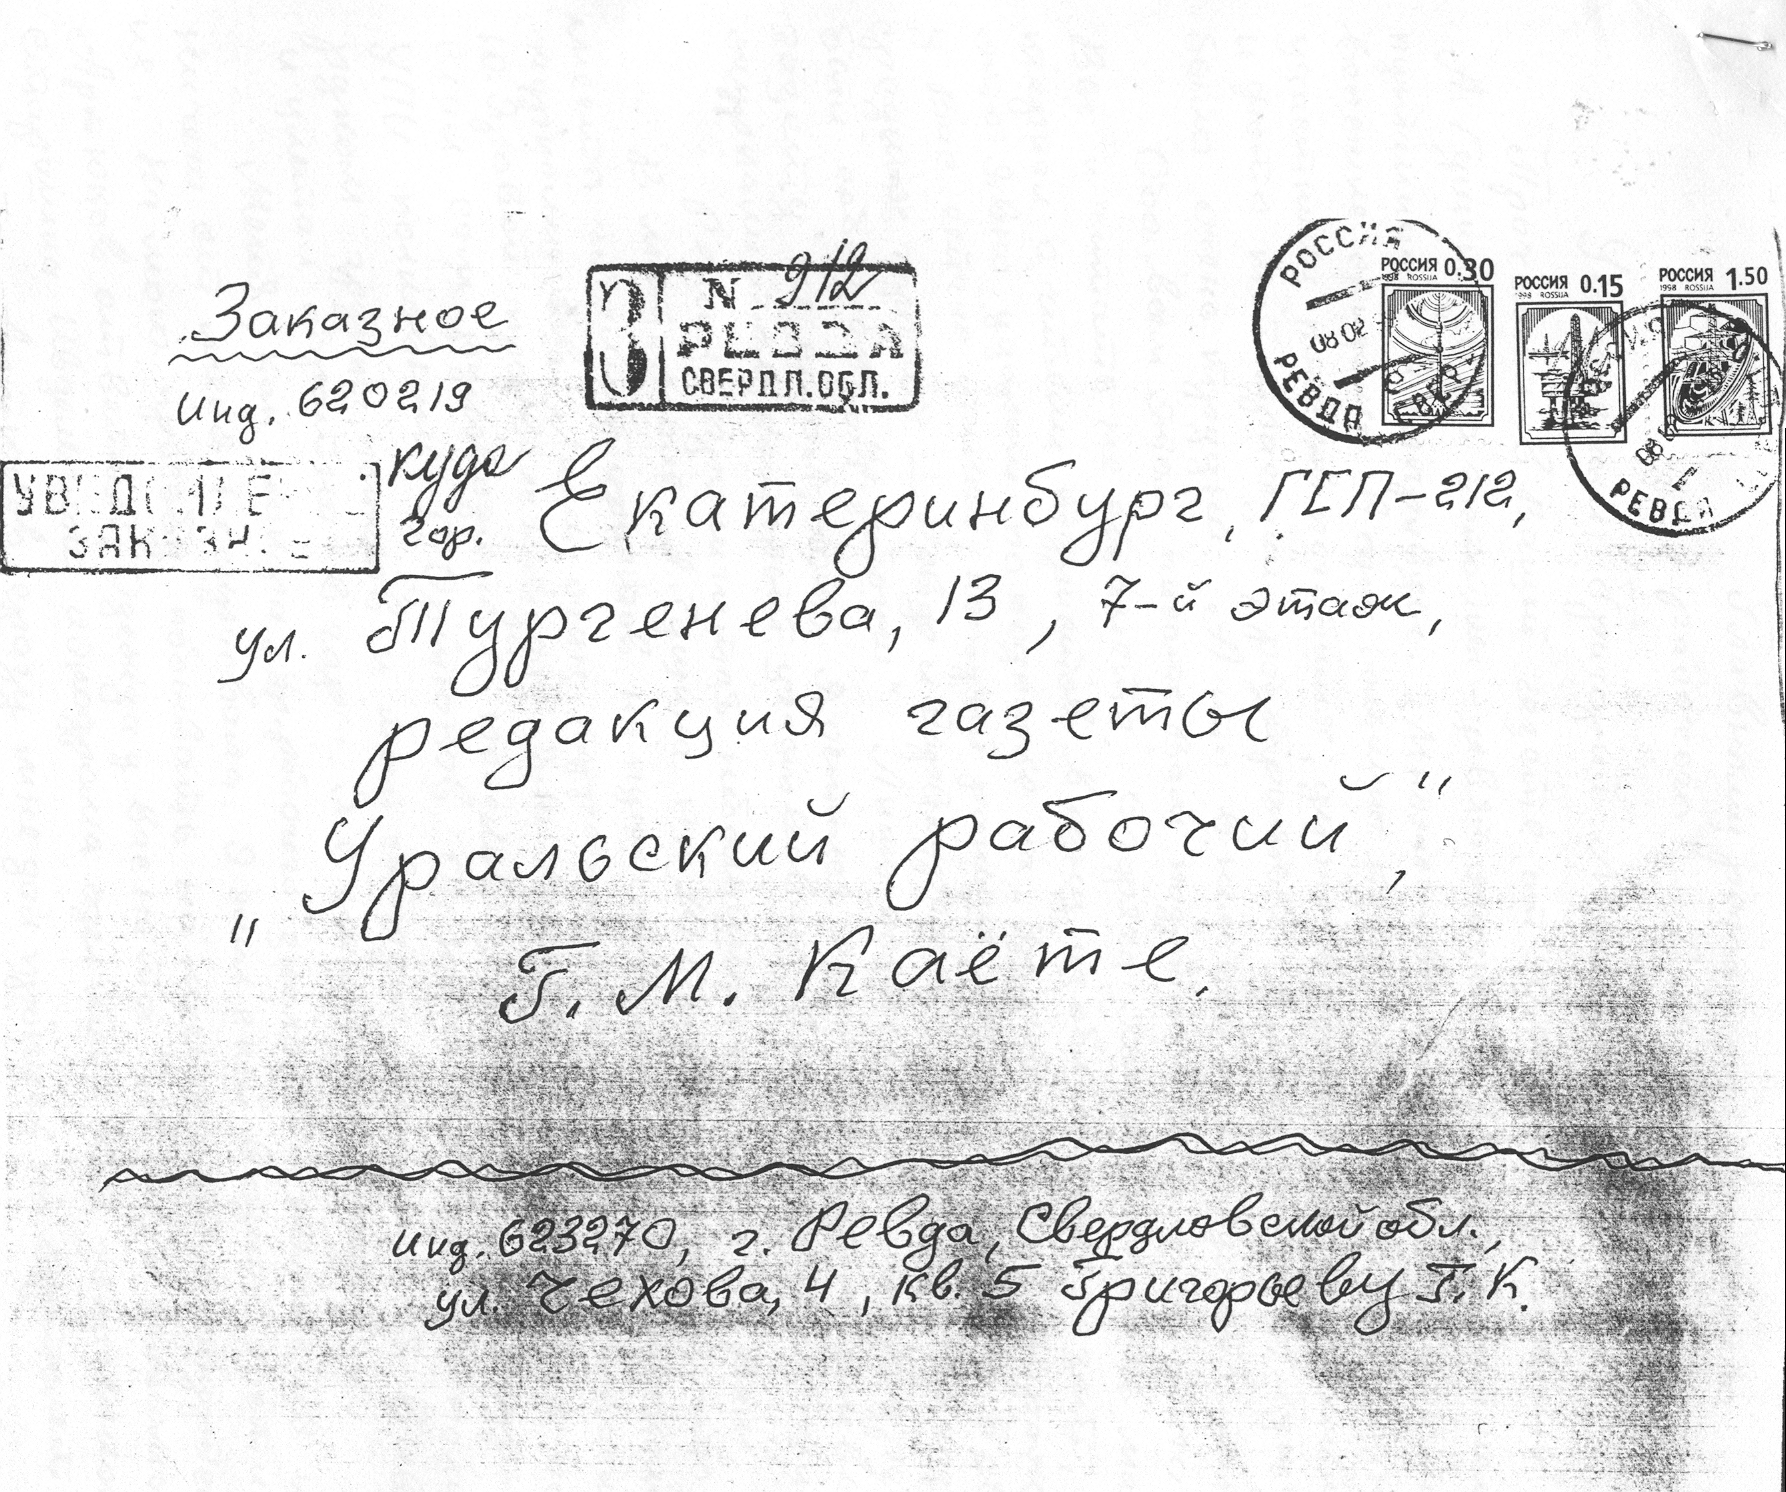 Заказное
Инд. 620219
N 912
З РЕВДА
СВЕРДЛ.ОБЛ.
РОССИЯ
08 02
РЕВДА
РОССИЯ 0.30
1998 ROSSIJA
РОССИЯ 0.15
1998 ROSSIJA
РОССИЯ 1.50
1998 ROSSIJA
08
РЕВДА
УВЕДОМЛЕНИЕ
ЗАКАЗНОЕ
куда
гор. Екатеринбург, ГСП-212,
ул. Тургенева, 13, 7-й этаж,
редакция газеты
„Уральский рабочий",
Г. М. Каёте.
инд. 623270, г. Ревда, Свердловской обл.,
ул. Чехова, 4, кв. 5 Григорьеву Г. К.